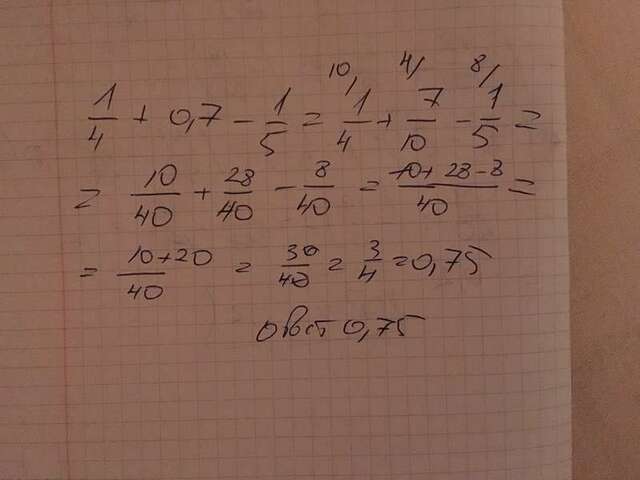 1/4 + 0,7 - 1/5 = 10/ 1/4 + 4/ 7/10 - 8/ 1/5 =
= 10/40 + 28/40 - 8/40 = (10 + 28 - 8)/40 =
= (10 + 20)/40 = 30/40 = 3/4 = 0,75
ответ 0,75